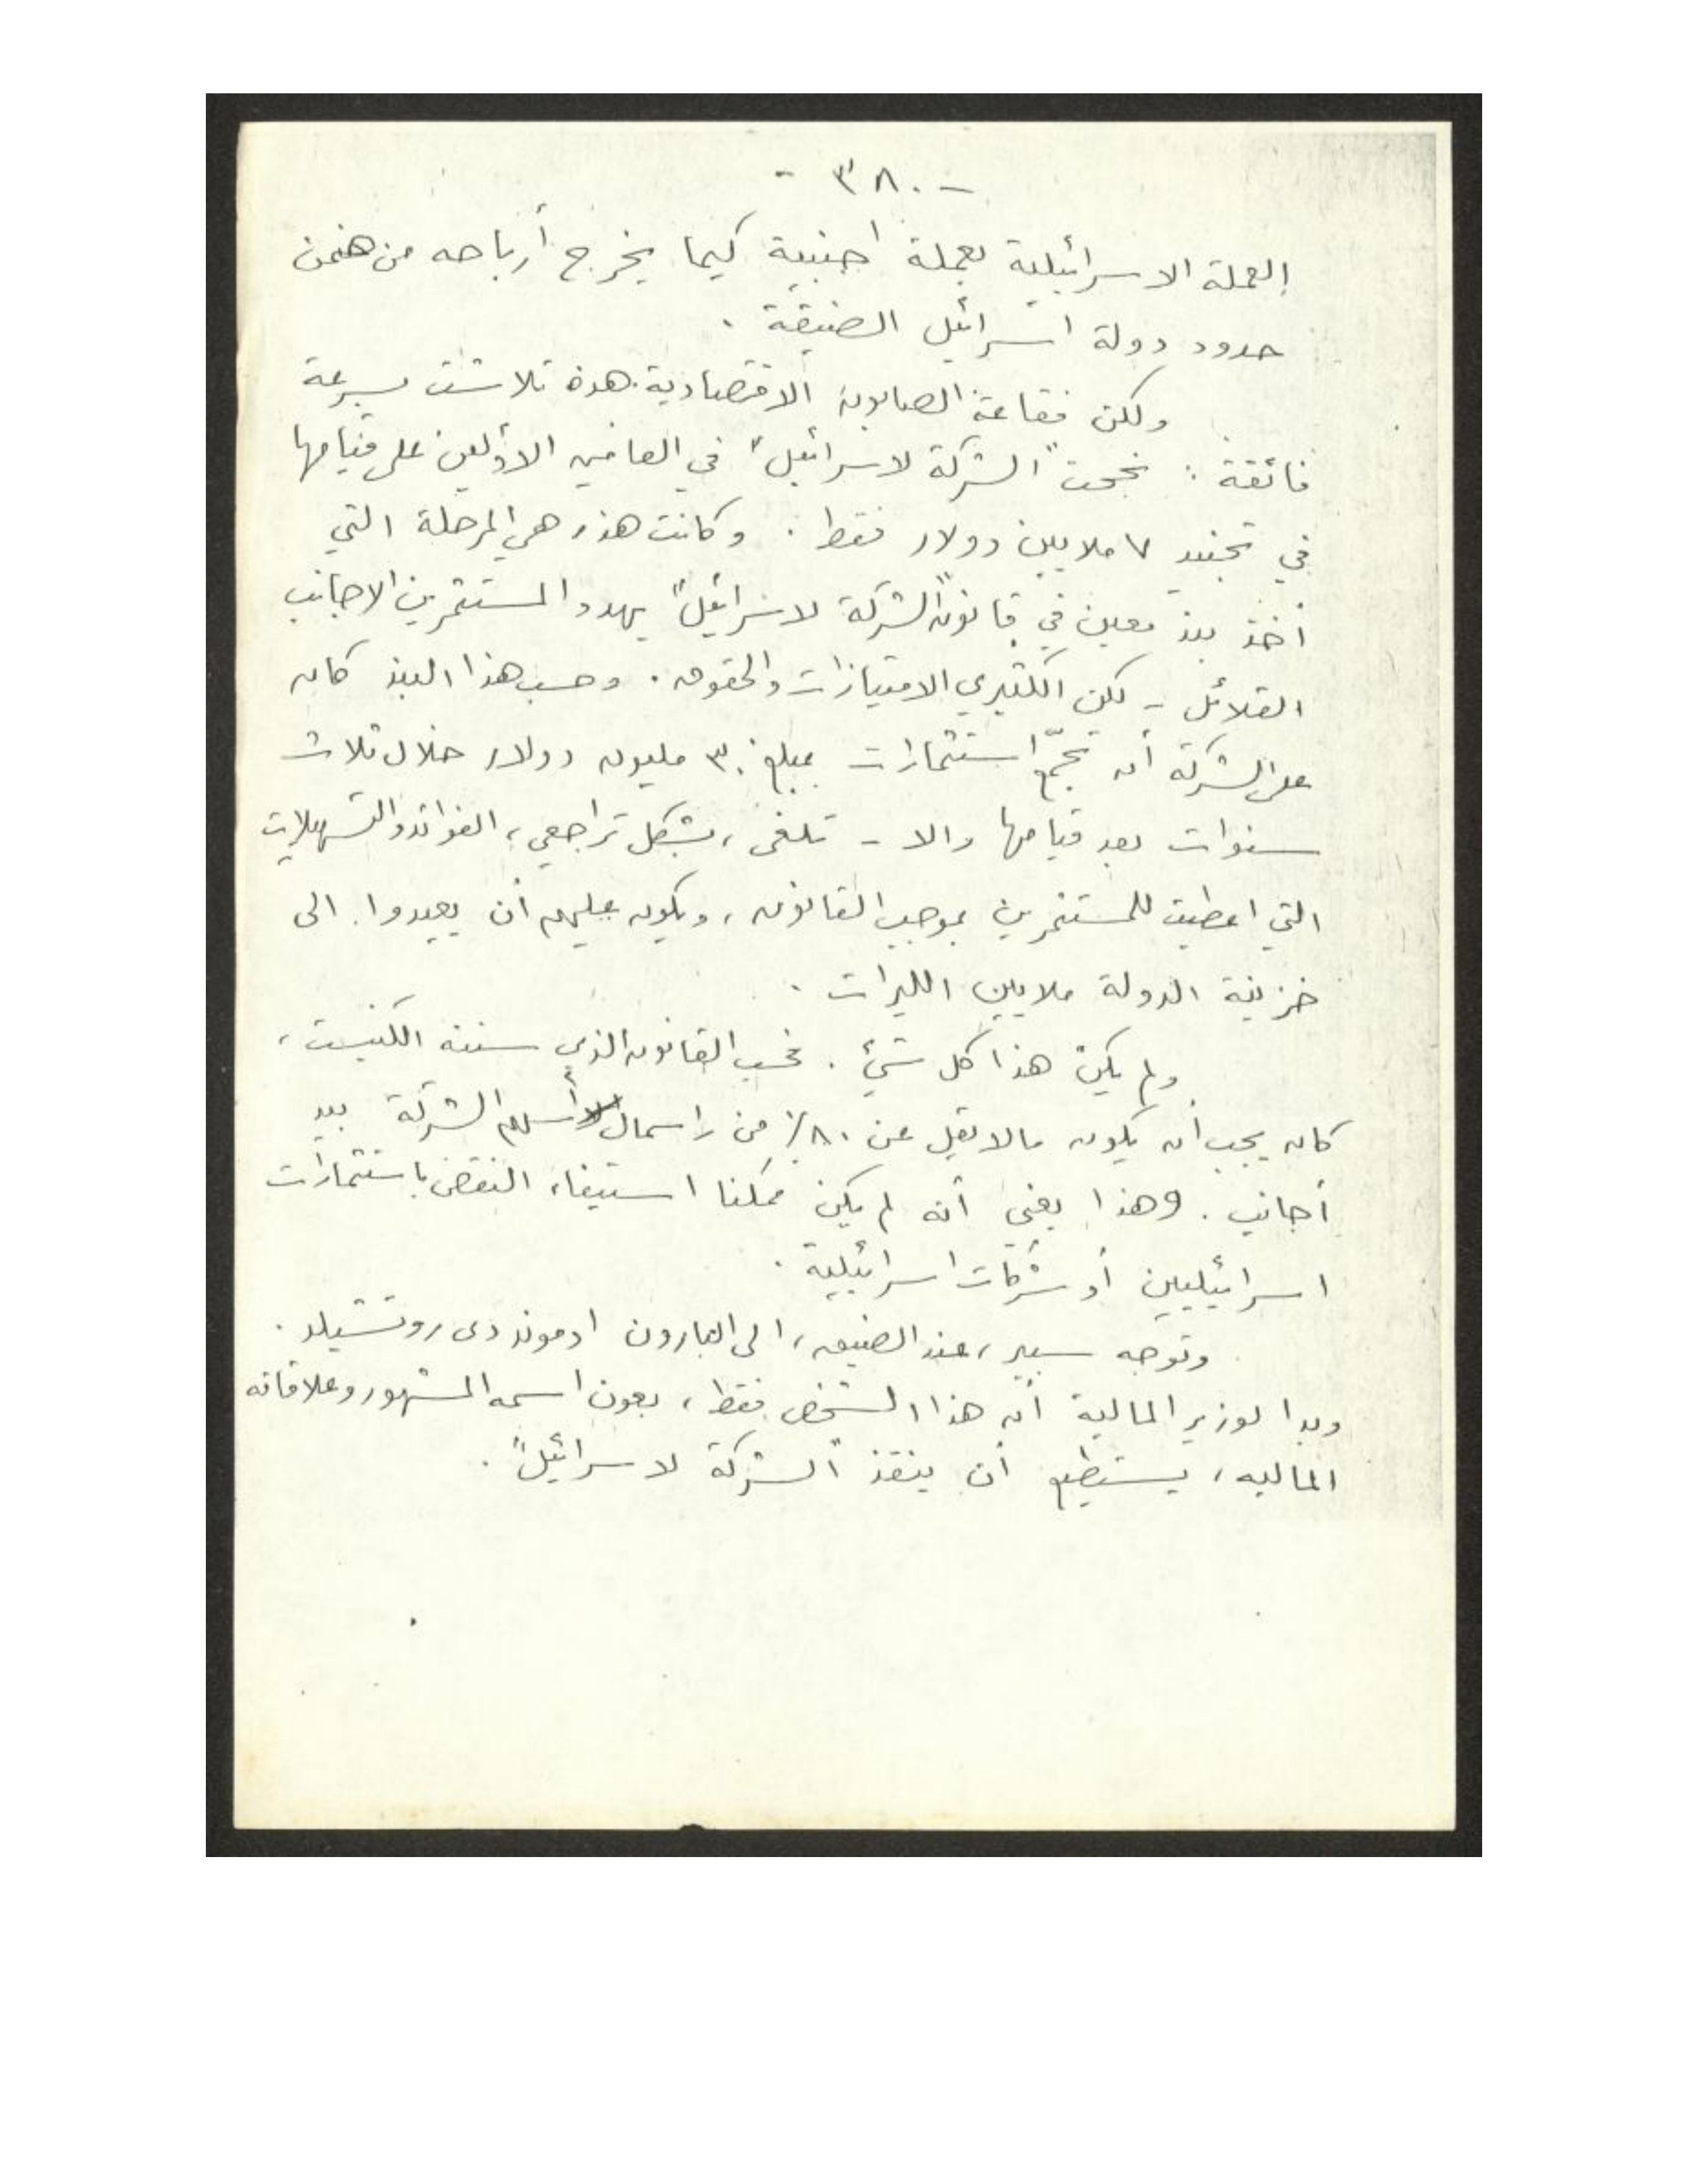 - ٣٨٠ -
العملة الاسرائيلية بعملة اجنبية كيما يخرج أرباحه من ضمن
حدود دولة اسرائيل الضيقة .
ولكن فقاعة الصابون الاقتصادية هذه تلاشت بسرعة
فائقة : نجحت "الشركة لاسرائيل" في العامين الاولين على قيامها
في تجنيد ٧ ملايين دولار فقط . وكانت هذه هي المرحلة التي
أخذ بند معين في قانون "الشركة لاسرائيل" يهدد المستثمرين الاجانب
القلائل - لكن الكثيري الامتيازات والحقوق . وحسب هذا البند كان
على الشركة أن تجمّع استثمارات بمبلغ ٣٠ مليون دولار خلال ثلاث
سنوات بعد قيامها والا - تلغى ، بشكل تراجعي ، الفوائد والتسهيلات
التي اعطيت للمستثمرين بموجب القانون ، ويكون عليهم أن يعيدوا الى
خزينة الدولة ملايين الليرات .
ولم يكن هذا كل شيئ . فحسب القانون الذي سنته الكنيست ،
كان يجب أن يكون مالا يقل عن ٨٠٪ من راسمال أسهم الشركة بيد
أجانب . وهذا يعني أنه لم يكن ممكنا استيفاء النقص باستثمارات
اسرائيليين أو شركات اسرائيلية .
وتوجه سبير ، عند الضيق ، الى البارون ادموند دي روتشيلد .
وبدا لوزير المالية أن هذا الشخص فقط ، بعون اسمه المشهور وعلاقاته
المالية ، يستطيع أن ينقذ "الشركة لاسرائيل" .